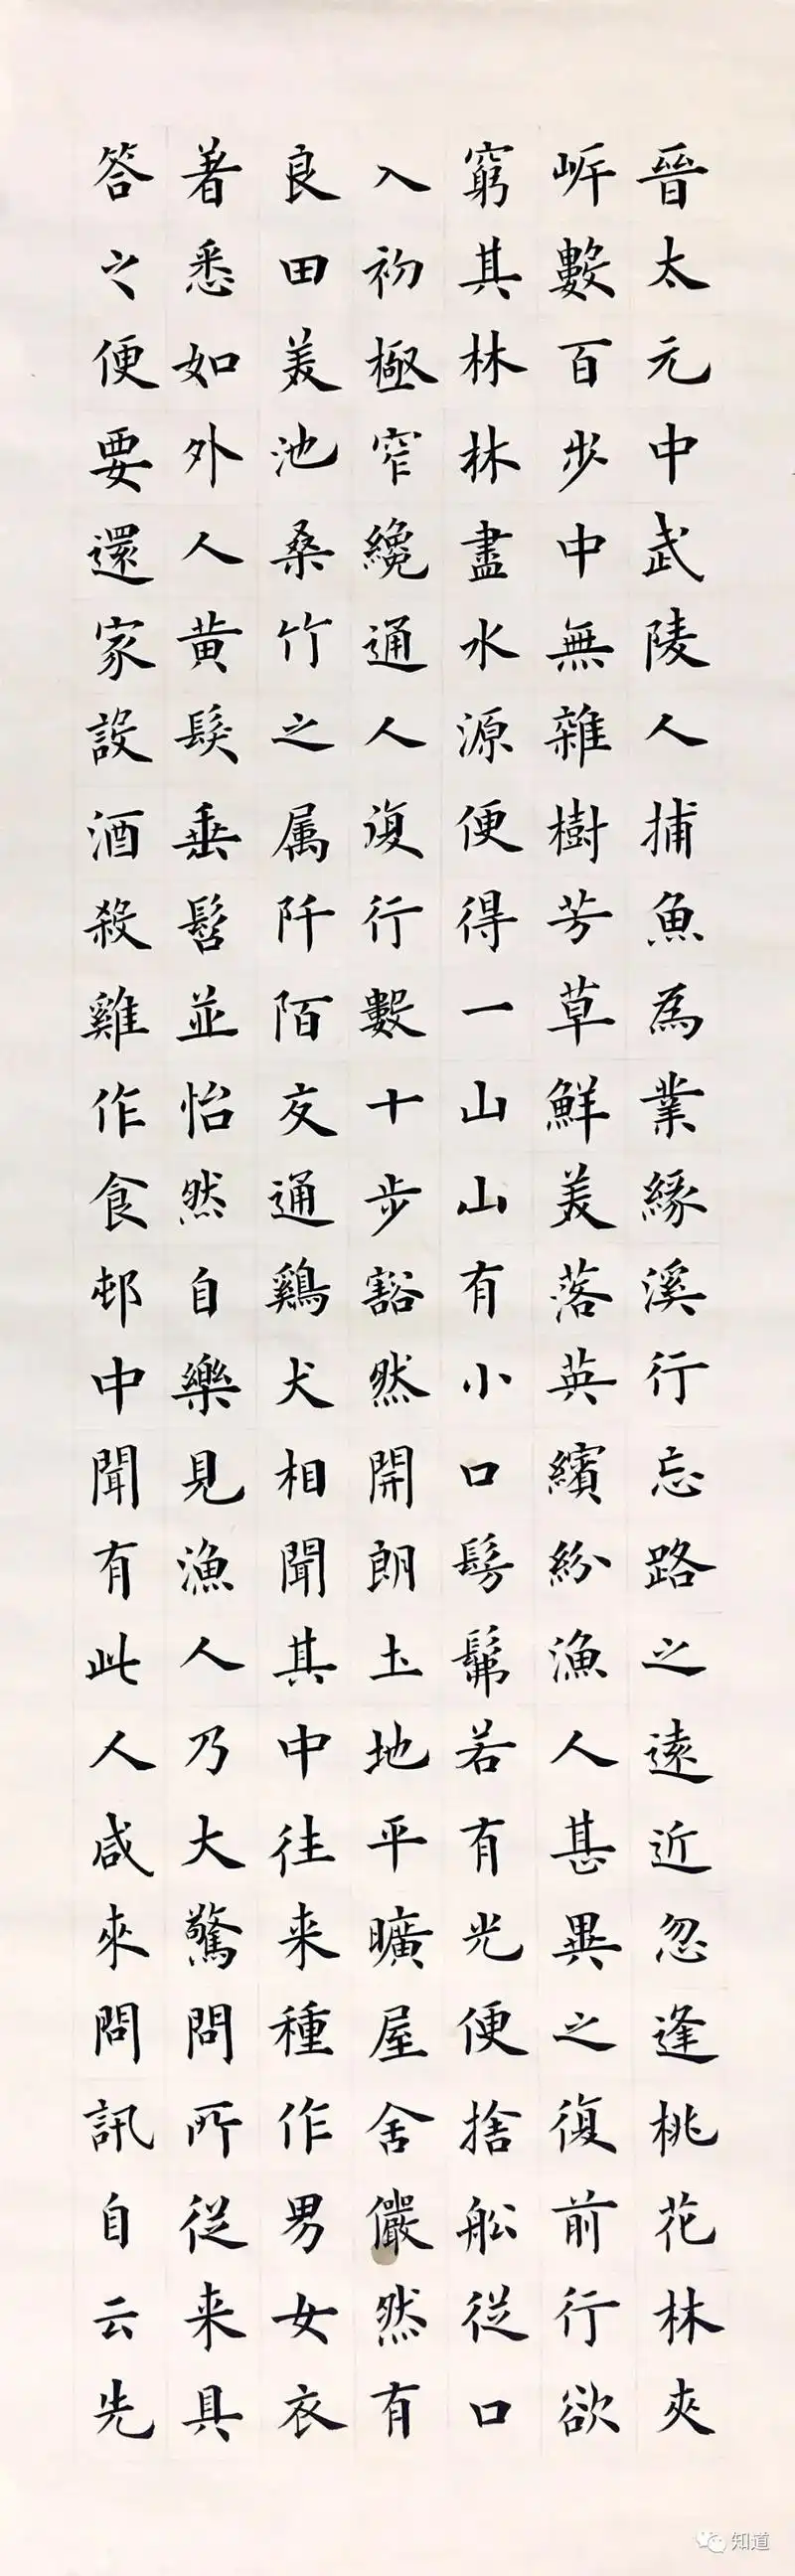 晉太元中武陵人捕魚為業緣溪行忘路之遠近忽逢桃花林夾
岍數百步中無雜樹芳草鮮美落英繽紛漁人甚異之復前行欲
窮其林林盡水源便得一山山有小口髣髴若有光便捨舩從口
入初極窄纔通人復行數十步豁然開朗土地平曠屋舍儼然有
良田美池桑竹之属阡陌交通鷄犬相聞其中往来種作男女衣
著悉如外人黄髮垂髫並怡然自樂見漁人乃大驚問所從来具
答之便要還家設酒殺雞作食邨中聞有此人咸來問訊自云先
知道